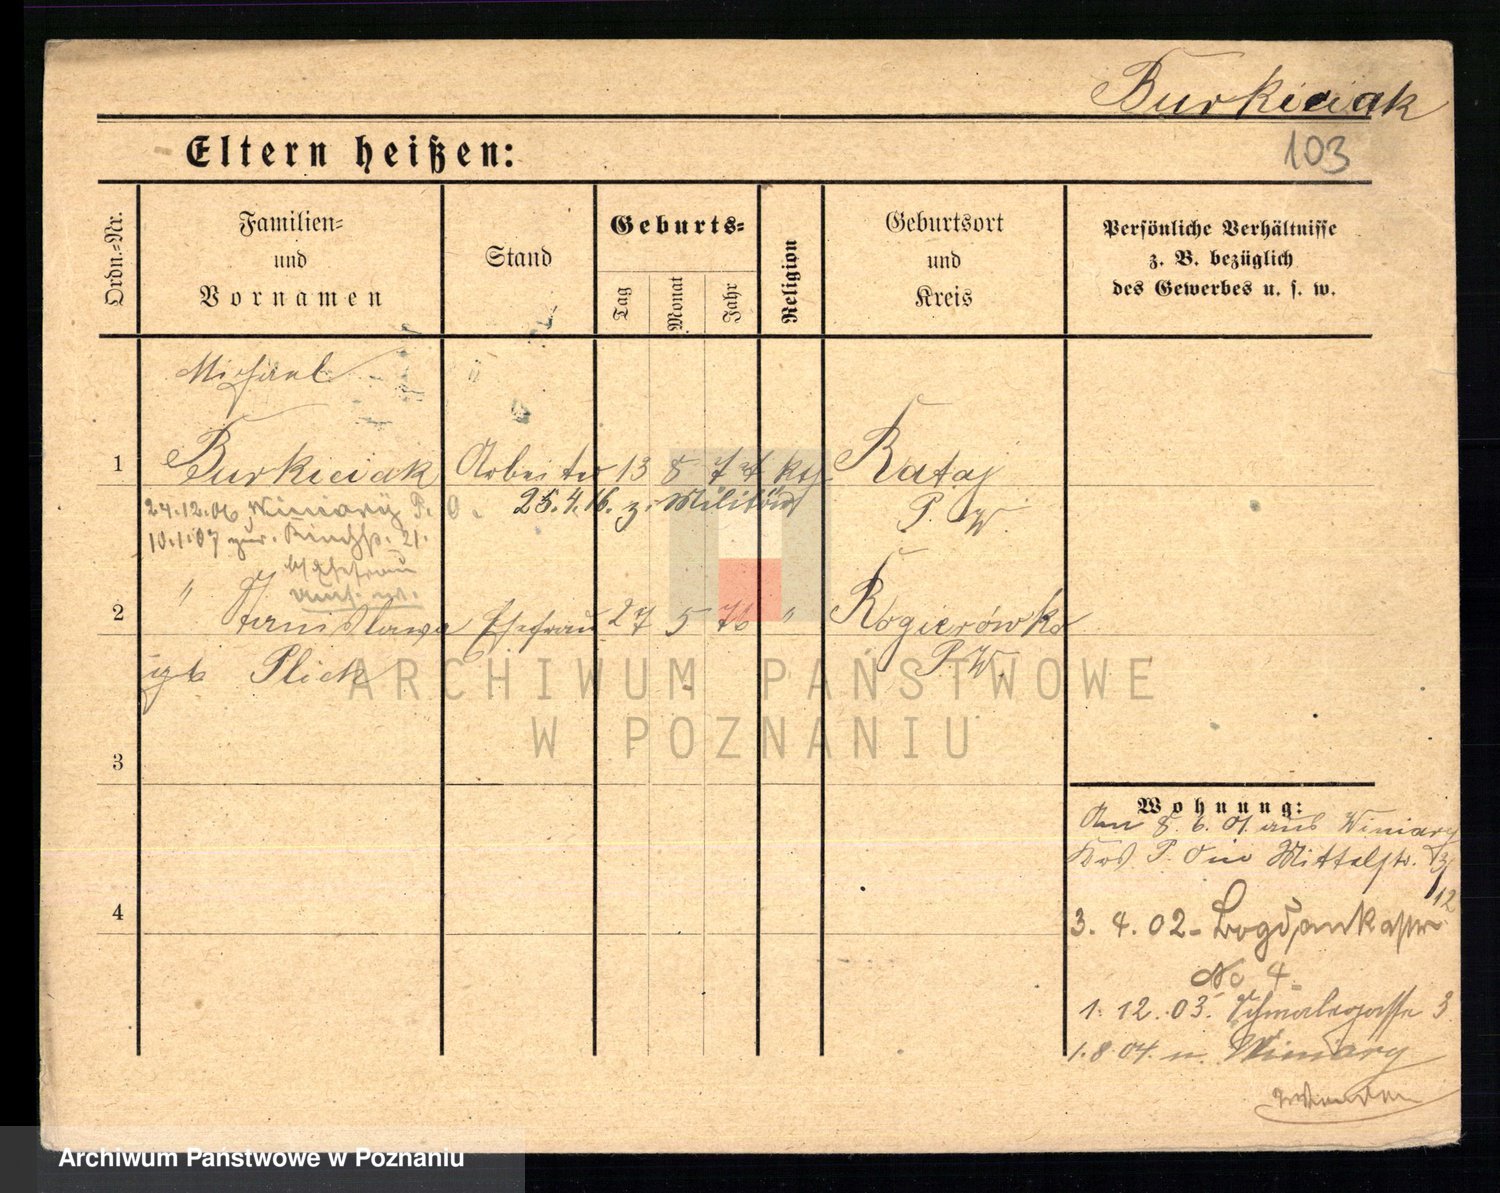 Burkiciak
103
Eltern heißen:
Ordn.-Nr.
Familien-
und
Vornamen
Stand
Geburts-
Tag
Monat
Jahr
Religion
Geburtsort
und
Kreis
Persönliche Verhältnisse
z. B. bezüglich
des Gewerbes u. s. w.
Michael
1 Burkiciak Arbeiter 13 8 kth. Rataj
25.4.16. z. Militär
P. W.
24.12.06 Winiary P. O.
10.1.07 zur. Kirchstr. 21.
Ehefrau
2 " Stanislawa Ehefrau 27 5 76 " Rogierówko
P. W.
gb Plick
3
4
Wohnung:
Am 8.6.01 aus Winiary
Krs P. O in Mittelstr.
12
3. 4. 02 - Bogdankastr
No 4
1. 12. 03. Schmalegasse 3
1.8.04. n. Winiary
ARCHIWUM PAŃSTWOWE
W POZNANIU
Archiwum Państwowe w Poznaniu